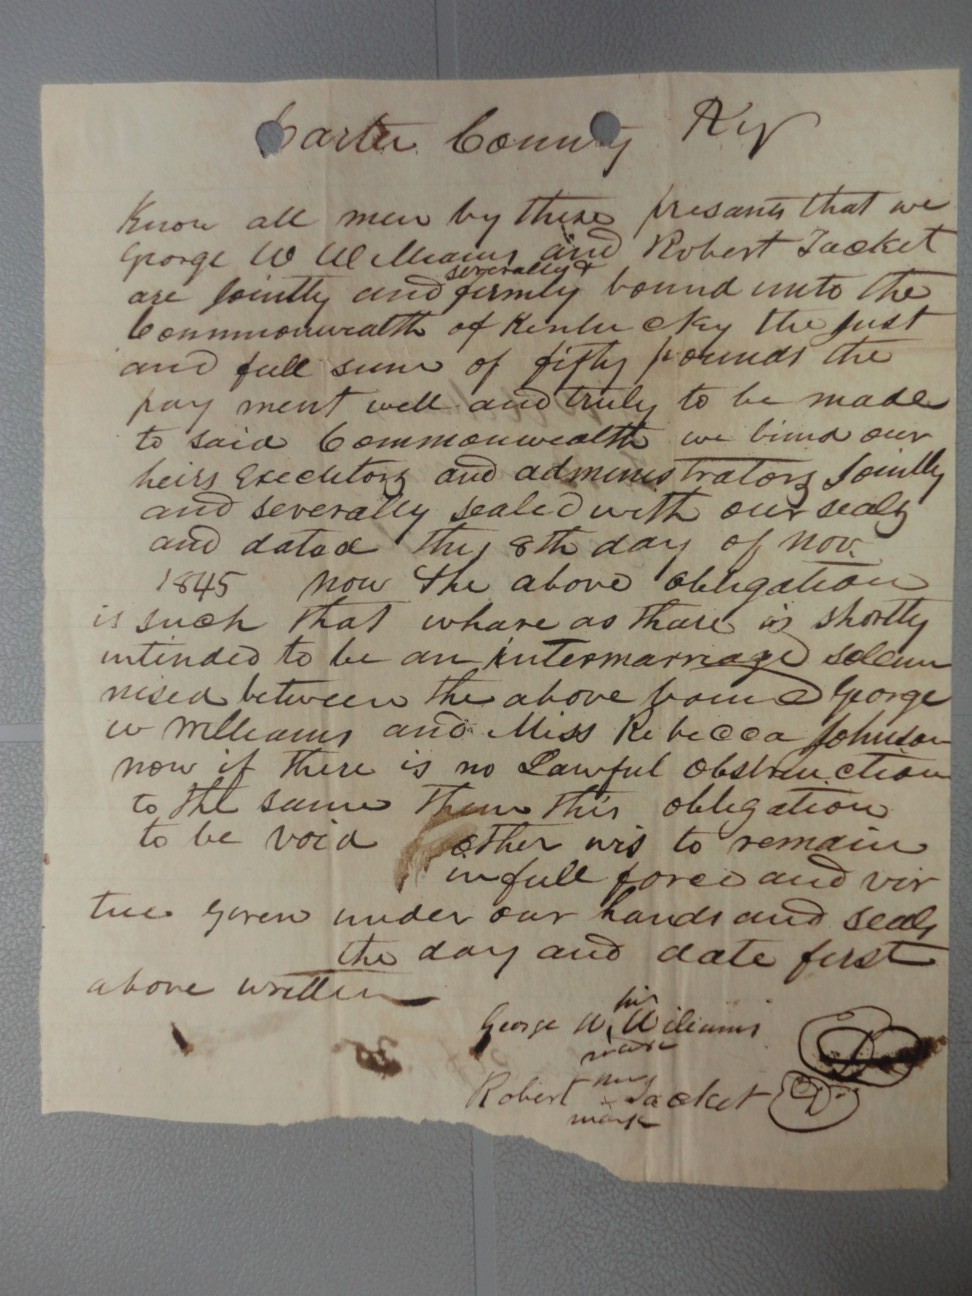 Carter County Ky
Know all men by these presants that we
George W Williams and Robert Jacket
are Jointly and severally & firmly bound unto the
Commonwealth of Kentucky the Just
and full sum of fifty pounds the
pay ment well and truly to be made
to said Commonwealth we bind our
heirs Executors and administrators Jointly
and severally sealed with our seals
and dated this 8th day of Nov.
1845 now the above obligation
is such that whare as thare is shortly
intended to be an intermarriage solem
nised between the above bound George
W Williams and Miss Rebecca Johnson
now if there is no Lawful obstruction
to the same then this obligation
to be void other wis to remain
in full force and vir
tue Given under our hands and seals
the day and date first
above written
George W his Williams
mark
Robert his Jacket
mark